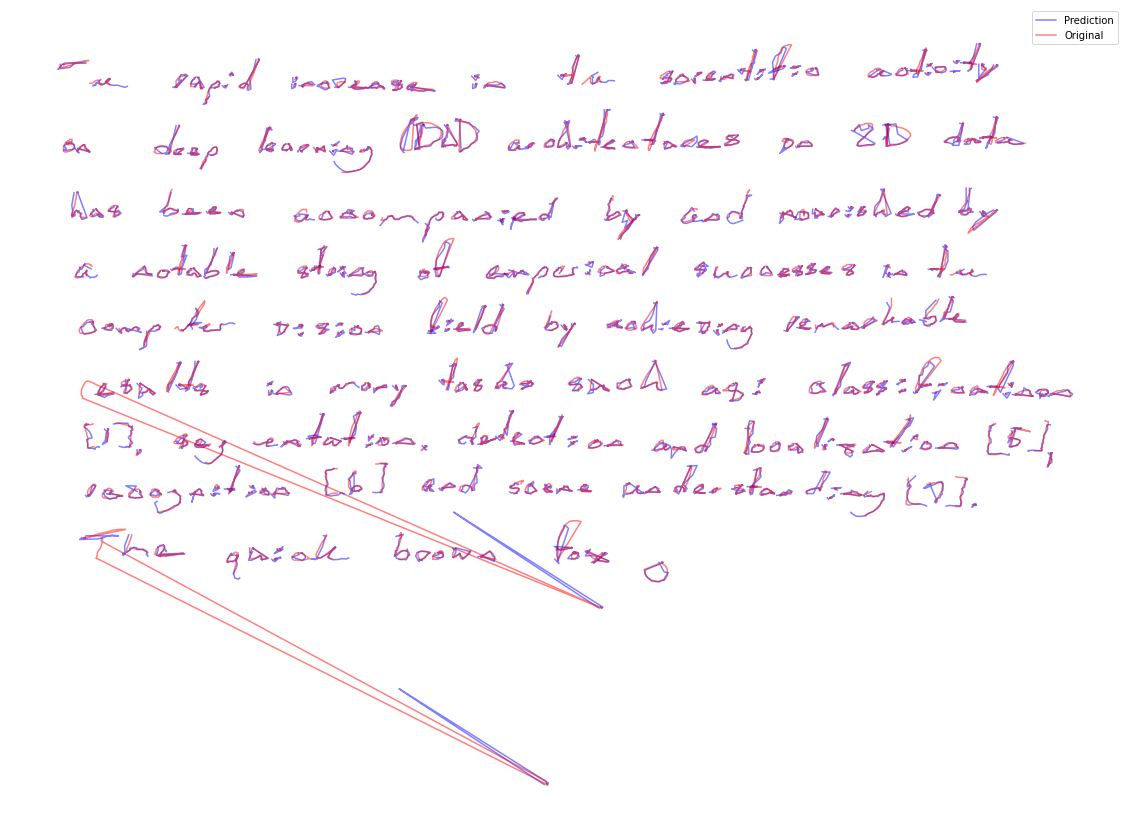 Prediction
Original
The rapid increase in the scientific activity
on deep learning (DNN architectures on 2D data
has been accompanied by and nourished by
a notable string of emperical successes in the
computer vision field by achieving remarkable
results in many tasks such as: classifications
[1]. segmentation. detection and localization [5],
recognition [6] and scene understanding [7].
The quick brown fox